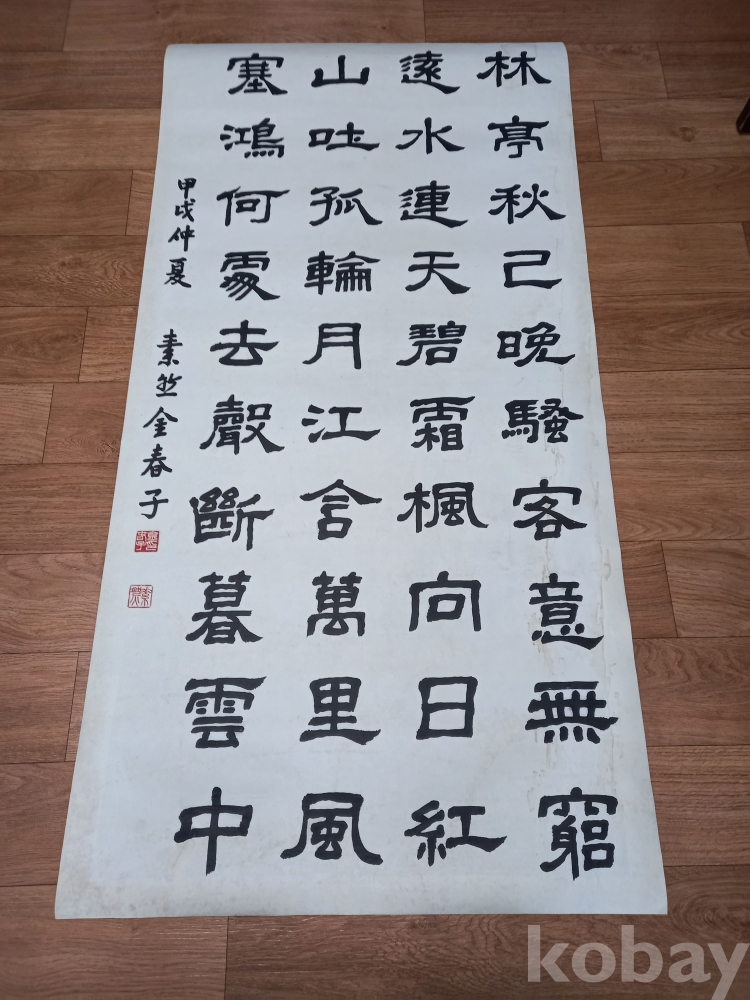 林亭秋已晚騷客意無窮
遠水連天碧霜楓向日紅
山吐孤輪月江含萬里風
塞鴻何處去聲斷暮雲中
甲戌仲夏
素竺金春子
kobay